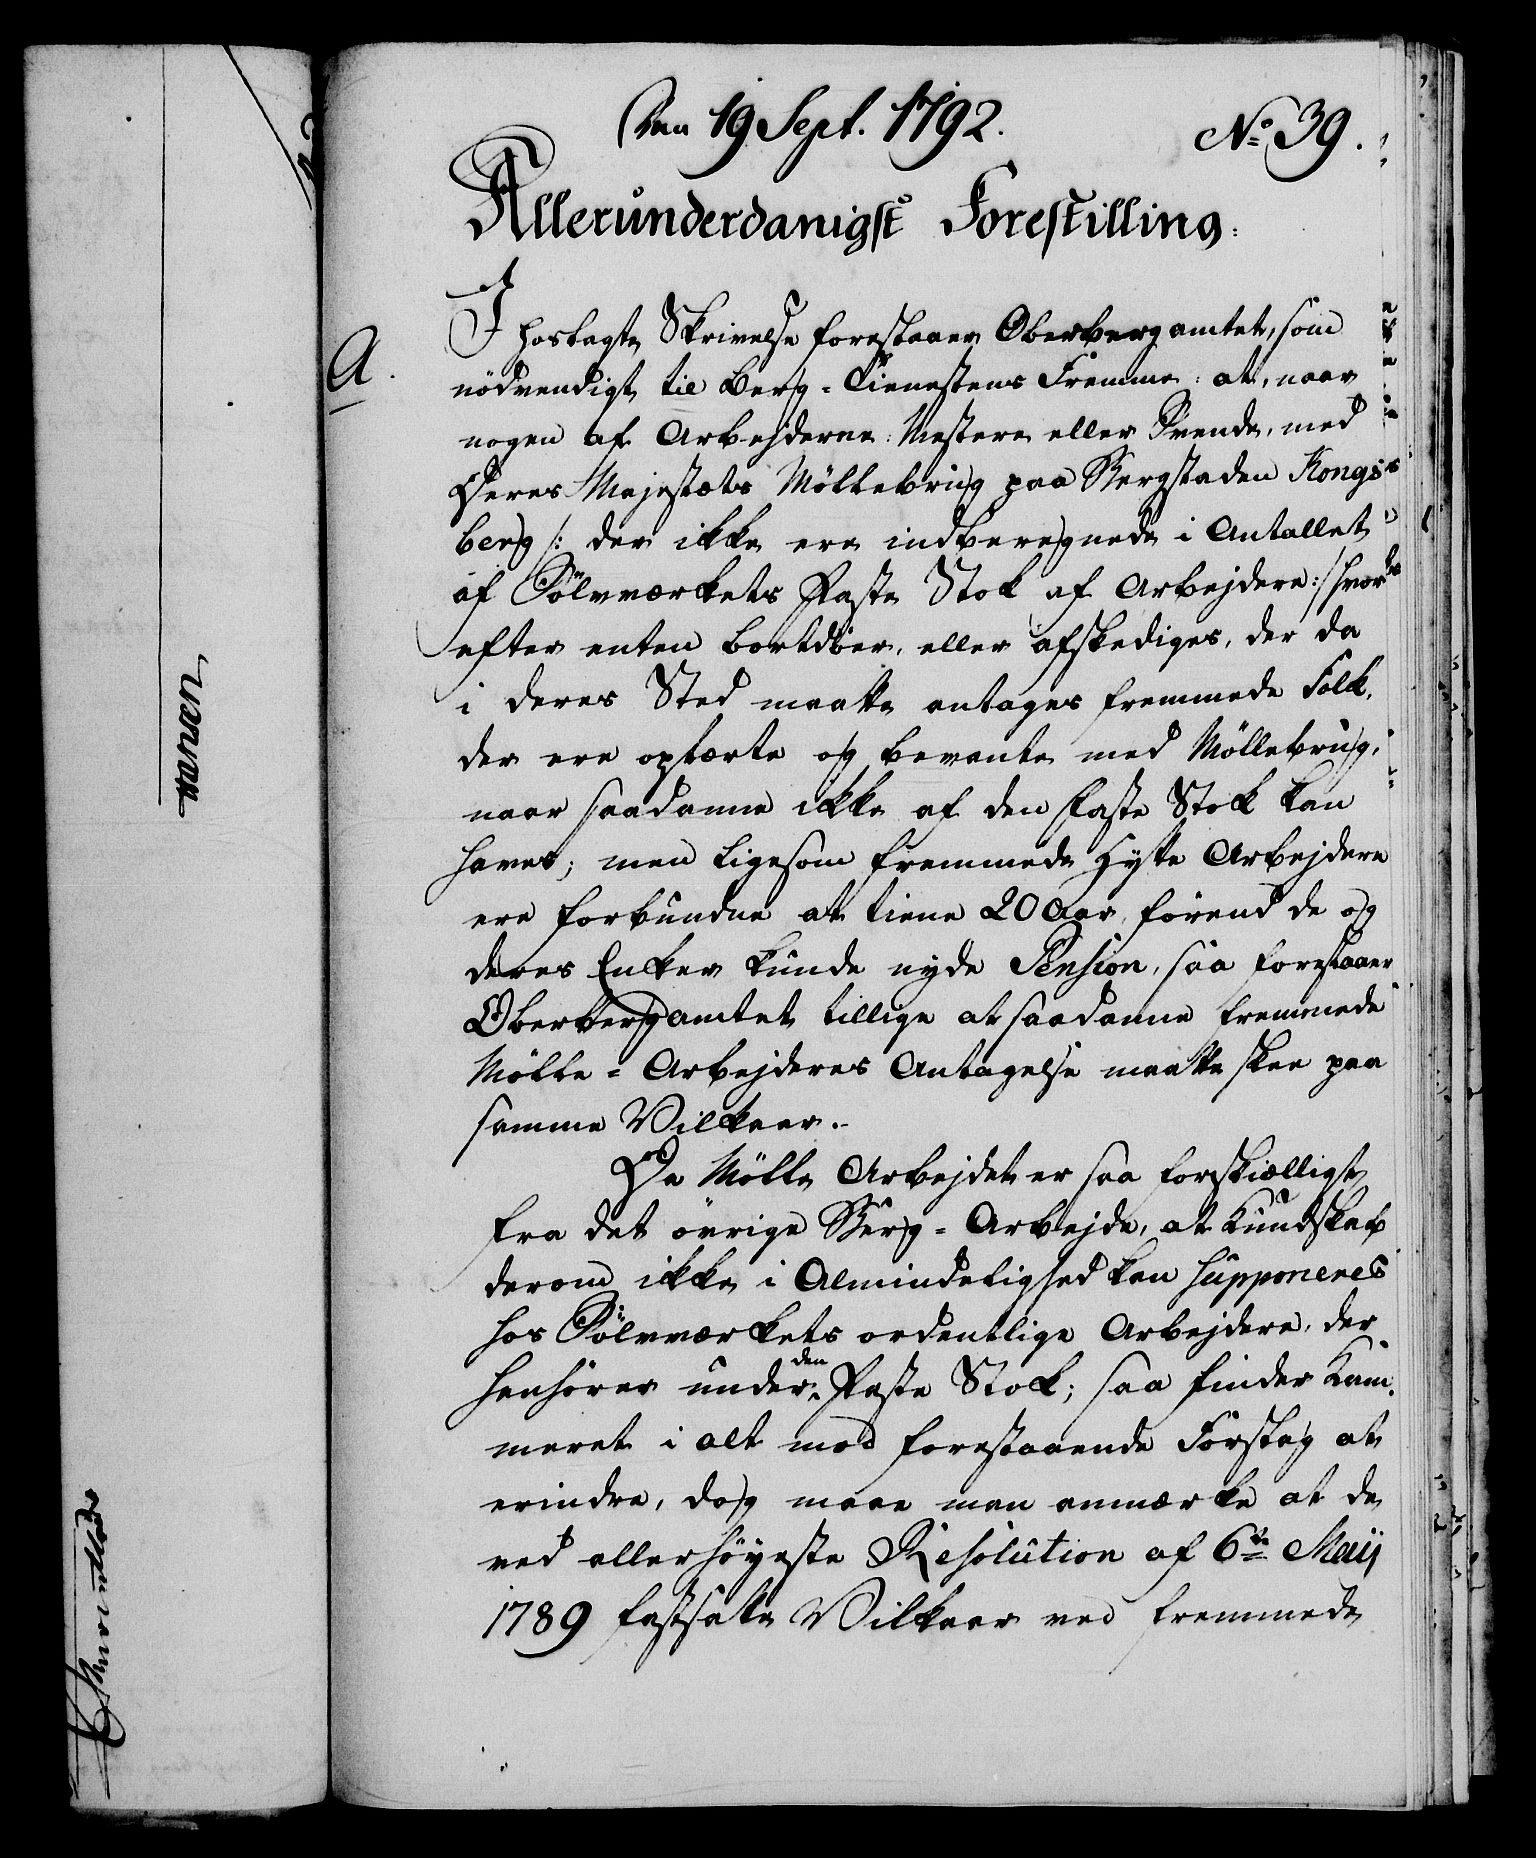 Den 19 Sept. 1792.
No 39.
Allerunderdanigst Forestilling:
A.
I hoslagte Skrivelse forestaaer Oberbergamtet, som
nödvendigt til Berg-Tienestens Fremme: at, naar
nogen af Arbejderne: Mestere eller Svende, med
Deres Majestæts Möllebrug paa Bergstaden Kongs-
berg /: der ikke ere indberegnede i Antallet
af Sölvværkets Faste Stok af Arbejdere :/ hver-
efter enten bortdöer, eller afskediges, der da
i deres Sted maatte antages fremmede Folk,
der ere oplærte og bevante med Möllebrug,
naar saadanne ikke af den Faste Stok kan
haves; men ligesom fremmede Hytte Arbejdere
ere forbundne at tiene 20 Aar, förend de og
deres Enker kunde nyde Pension, saa forestaaer
Oberbergamtet tillige at saadanne fremmede
Mölle-Arbejderes Antagelse maatte skee paa
samme Vilkaar.
Da Mölle Arbejdet er saa forskiælligt
fra det övrige Berg-Arbejde, at Kundskab
derom ikke i Almindelighed kan supponeres
hos Sölvværkets ordentlige Arbejdere, der
henhörer under den Faste Stok; saa finder Kam-
meret i alt mod forestaaende Forslag at
erindre, dog maae man anmærke at de
ved allerhöyeste Resolution af 6te Maij
1789 fastsatte Vilkaar ved fremmede